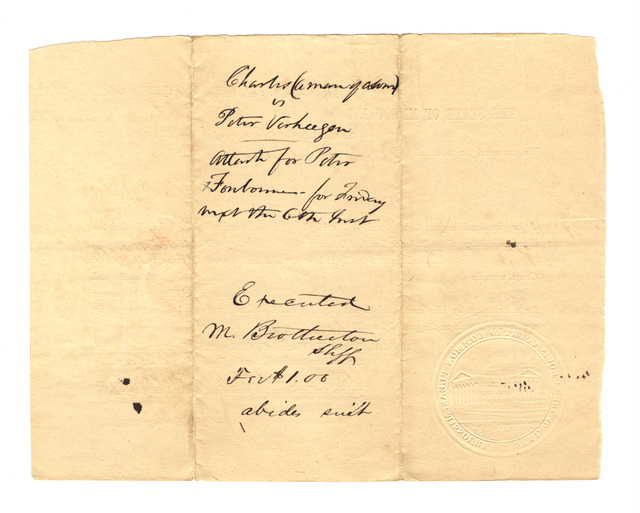 Charles (a man of a color)
vs
Peter Verheegen
Attach for Peter
Fonbonne - for Friday
next the 6th Inst
Executed
M. Brotherton
Shff
Fee $1.00
abides suit